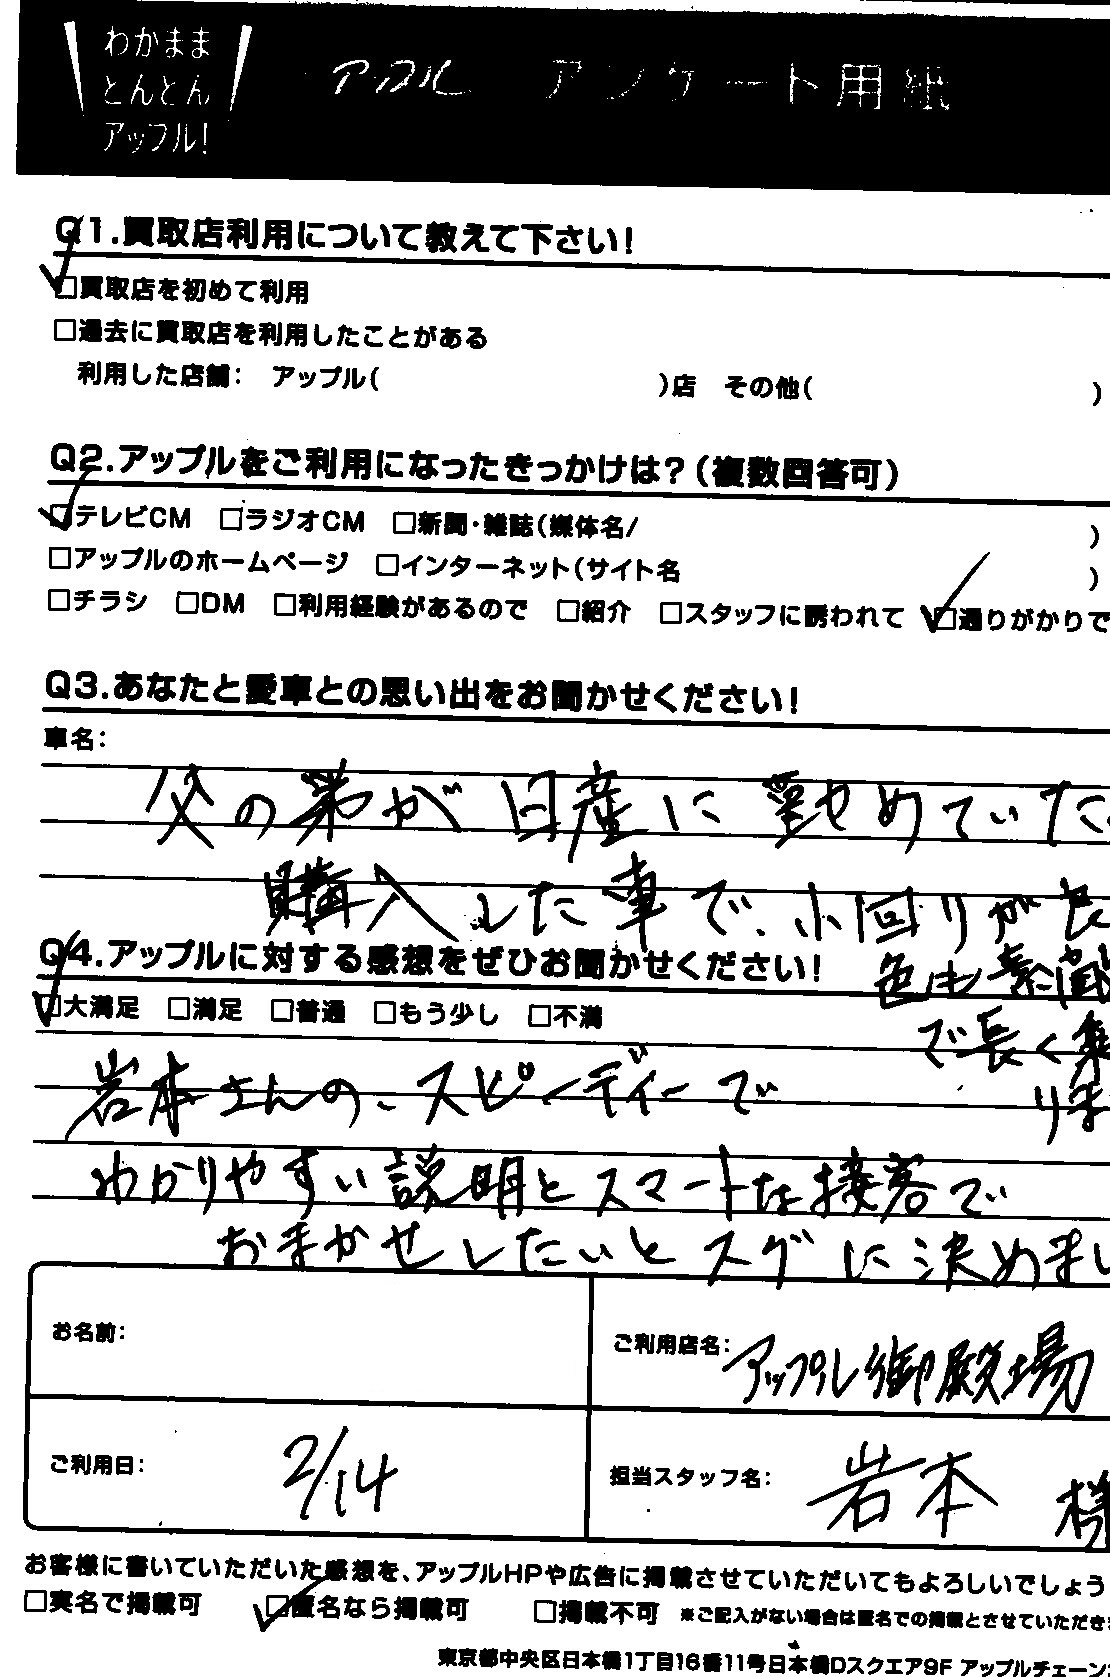 わかまま
とんとん
アップル!
アップル アンケート用紙
Q1.買取店利用について教えて下さい!
□買取店を初めて利用
□過去に買取店を利用したことがある
利用した店舗: アップル( )店 その他( )
Q2.アップルをご利用になったきっかけは?(複数回答可)
□テレビCM □ラジオCM □新聞・雑誌(媒体名/ )
□アップルのホームページ □インターネット(サイト名 )
□チラシ □DM □利用経験があるので □紹介 □スタッフに誘われて □通りがかりで
Q3.あなたと愛車との思い出をお聞かせください!
車名:
父の弟が日産に勤めていた
購入した車で、小回りが良
色も素敵
で長く乗
りま
Q4.アップルに対する感想をぜひお聞かせください!
□大満足 □満足 □普通 □もう少し □不満
岩本さんの、スピーディーで
わかりやすい説明とスマートな接客で
おまかせしたいとスグに決めまし
お名前:
ご利用店名: アップル御殿場
ご利用日: 2/14
担当スタッフ名: 岩本 様
お客様に書いていただいた感想を、アップルHPや広告に掲載させていただいてもよろしいでしょう
□実名で掲載可 □匿名なら掲載可 □掲載不可 ※ご記入がない場合は匿名での掲載とさせていただきま
東京都中央区日本橋1丁目16番11号日本橋Dスクエア9F アップルチェーン